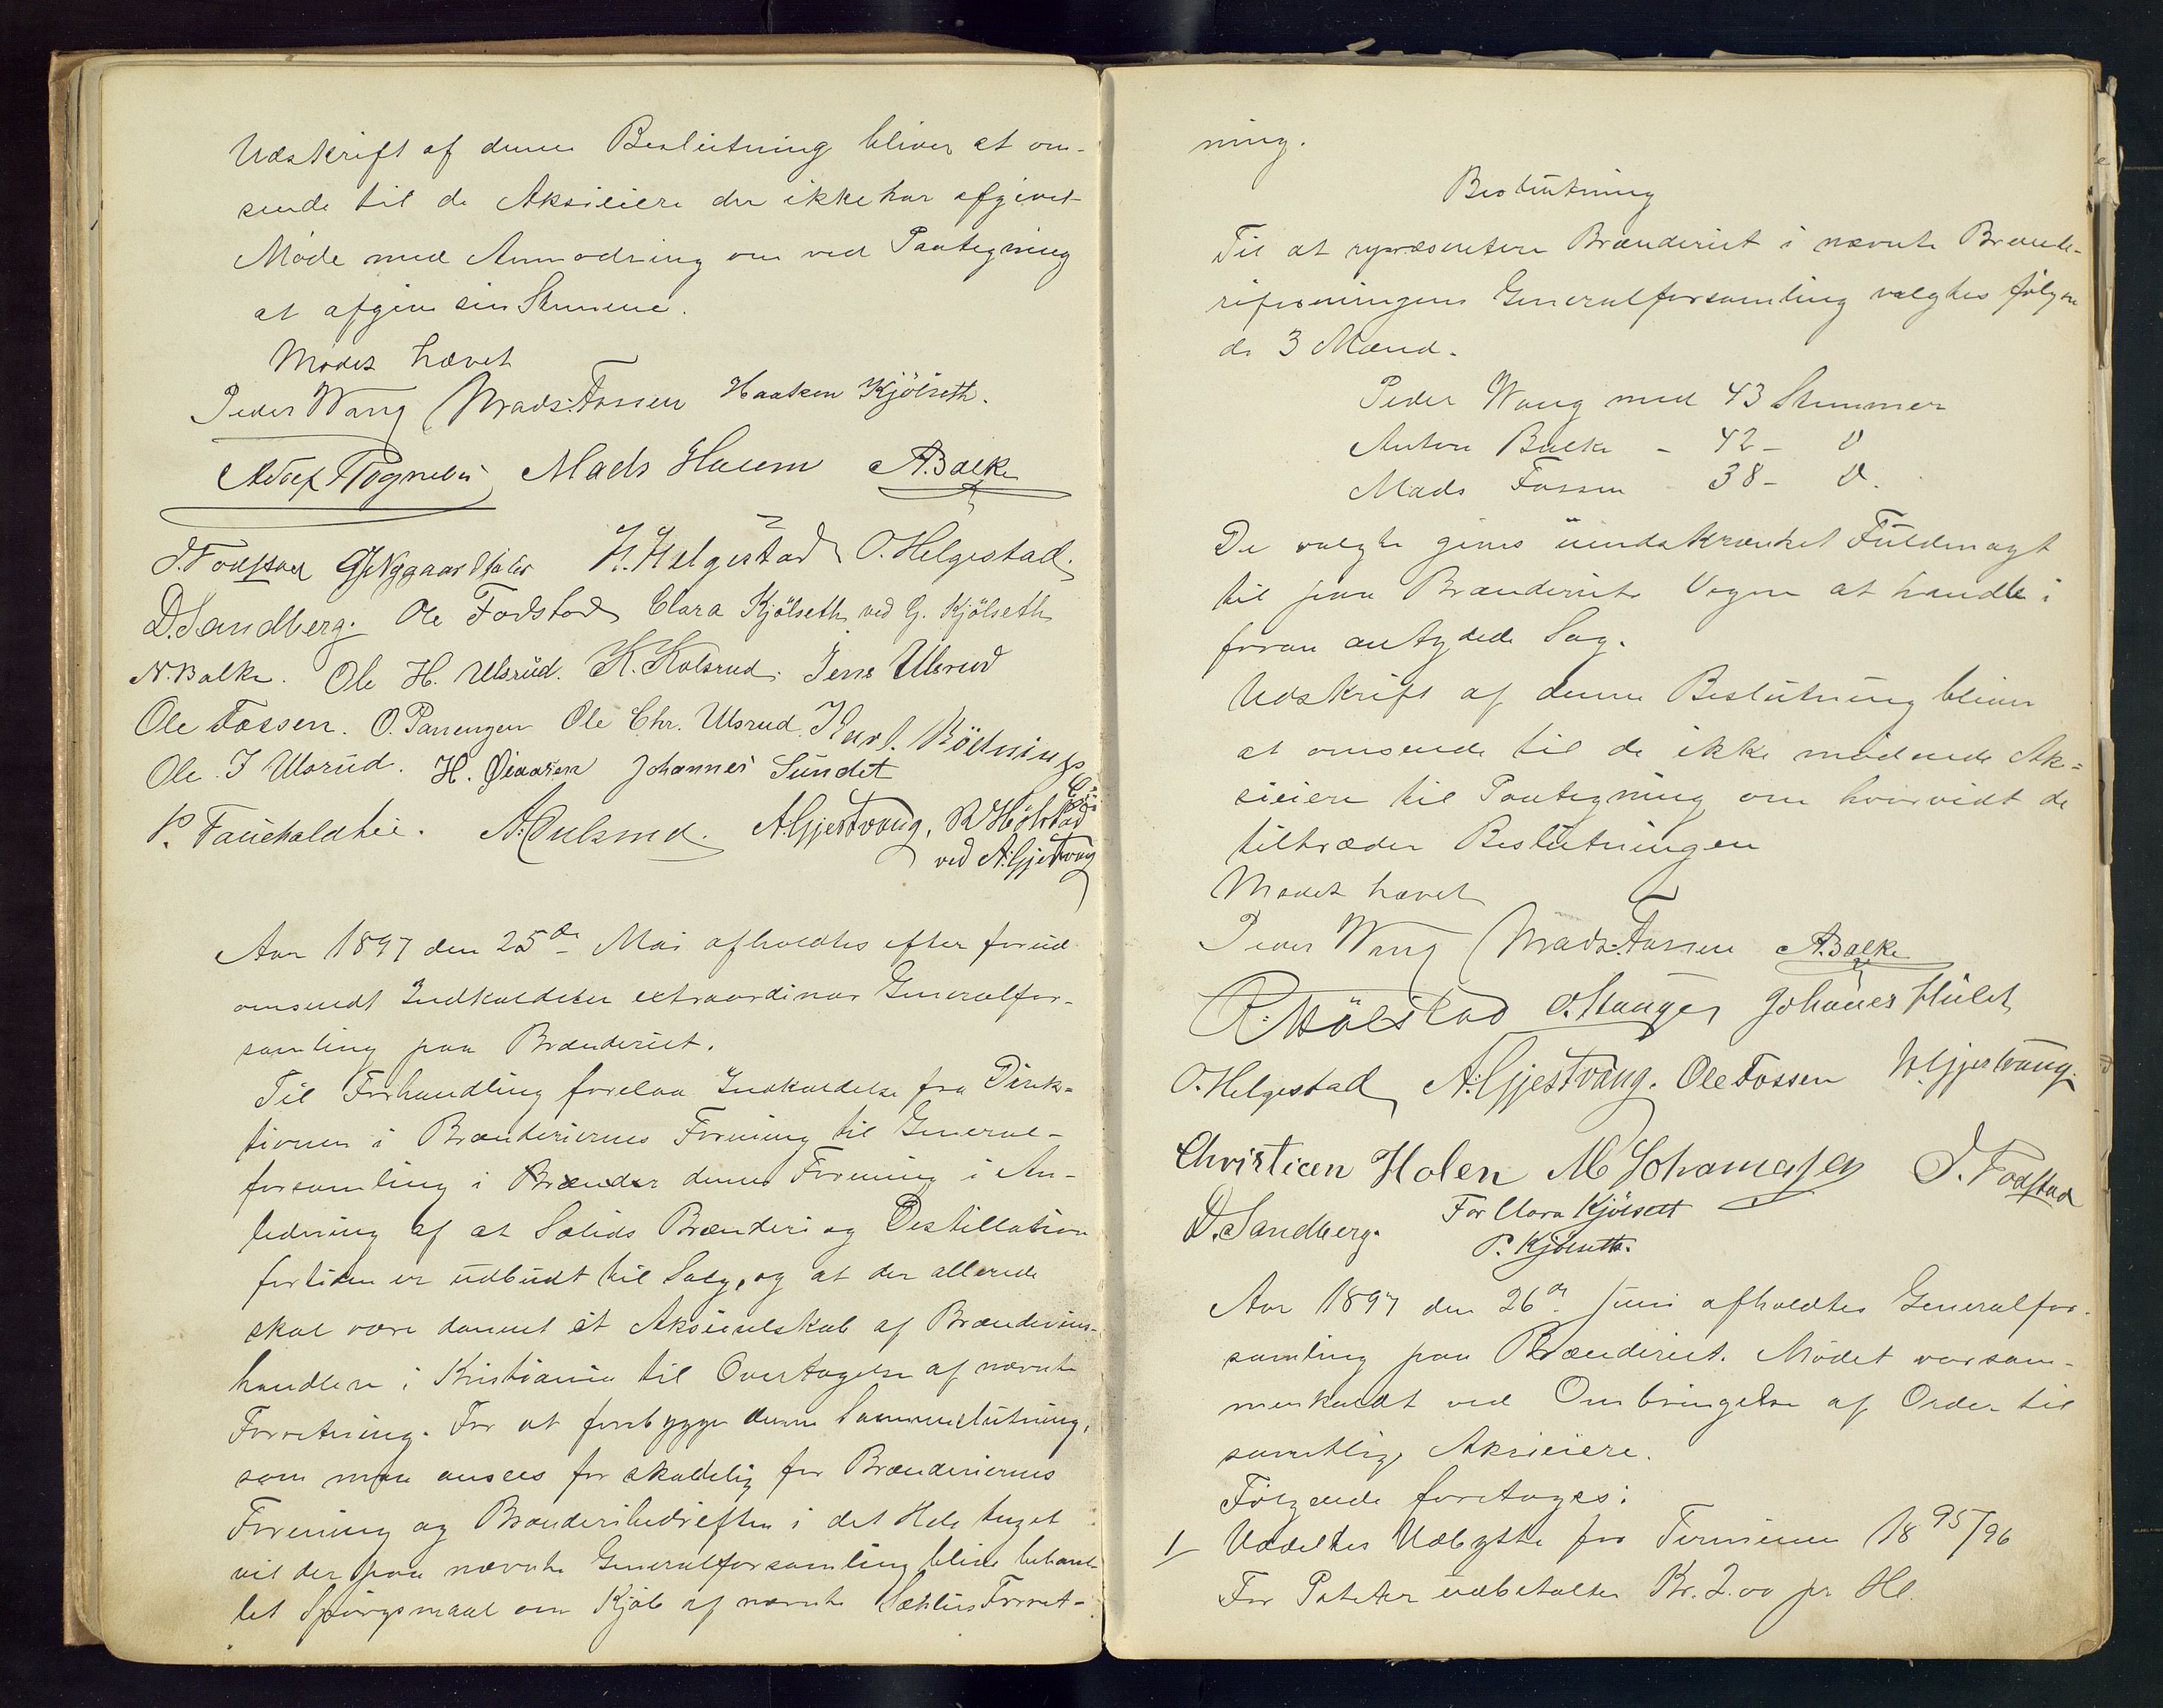 Udskrift af denne Beslutning bliver at om-
sende til de Aksieiere der ikke har afgivet
Møde med Anmodning om ved Paategning
at afgive sin Stemme.
Mødet hævet
Peder Wang Mads Fossen Haaken Kjölseth.
Mads Haum A. Balke
J. Fodstad H. Helgestad O. Helgestad.
D. Sandberg. Ole Fodstad Clara Kjölseth ved G. Kjölseth
N. Balke. Ole H. Ulsrud. K. Kolsrud. Jens Ulsrud
Ole Fossen. O. Panengen Ole Chr. Ulsrud Karl
Ole J Ulsrud. H. Johannes Sundet
P. A. Gjestvang, R Hölstad
ved A. Gjestvang
Aar 1897 den 25de Mai afholdtes efter forud
omsendt Indkaldelse extraordinær Generalfor-
samling paa Brænderiet.
Til Forhandling forelaa Indkaldelse fra Direk-
tionen i Brænderiernes Forening til General-
forsamling i Brænder denne Forening i An-
ledning af at Sælids Brænderi og Destillation
fortiden er udbudt til Salg, og at der allerede
skal være dannet et Aksieselskab af Brændevins-
handlere i Kristiania til Overtagelse af nævnte
Forretning. For at forebygge denne Sammenslutning,
som maa ansees for skadelig for Brænderiernes
Forening og Brænderibedriften i det Hele taget
vil der paa nævnte Generalforsamling blive behand-
let Spørgsmaal om Kjøb af nævnte Forret-
ning.
Beslutning
Til at repræsentere Brænderiet i nævnte Brænde-
riforeningens Generalforsamling valgtes følgen
de 3 Mænd.
Peder Wang med 43 Stemmer
Anton Balke - 42 - "
Mads Fossen 38 - ".
De valgte gives uindskrænket Fuldmagt
til paa Brænderiets Vegne at handle i
foran antydede Sag.
Udskrift af denne Beslutning bliver
at omsende til de ikke mødende Ak=
sieiere til Paategning om hvorvidt de
tiltræder Beslutningen
Mødet hævet
Peder Wang Mads Fossen A. Balke
R. Hölstad O. Stange Johannes
O. Helgestad A. Gjestvang. Ole Fossen Gjestvang.
Christian Holen M Johannesen J. Fodstad
D. Sandberg. For Clara Kjölseth
P. Kjölseth.
Aar 1897 den 26de Juni afholdtes Generalfor-
samling paa Brænderiet. Mødet var sam-
menkaldt ved Ombringelse af Order til
samtlige Aksieiere.
Følgende foretoges:
1/ Uddeltes Udbytte for Terminen 1895/96
For Poteter udbetaltes Kr. 2.00 pr Hl.